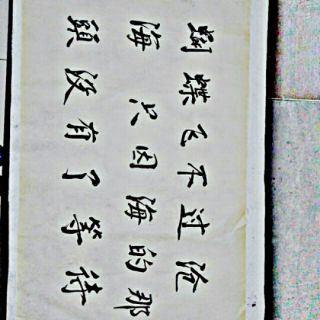 蝴蝶飞不过沧
海 只因海的那
頭没有了等待